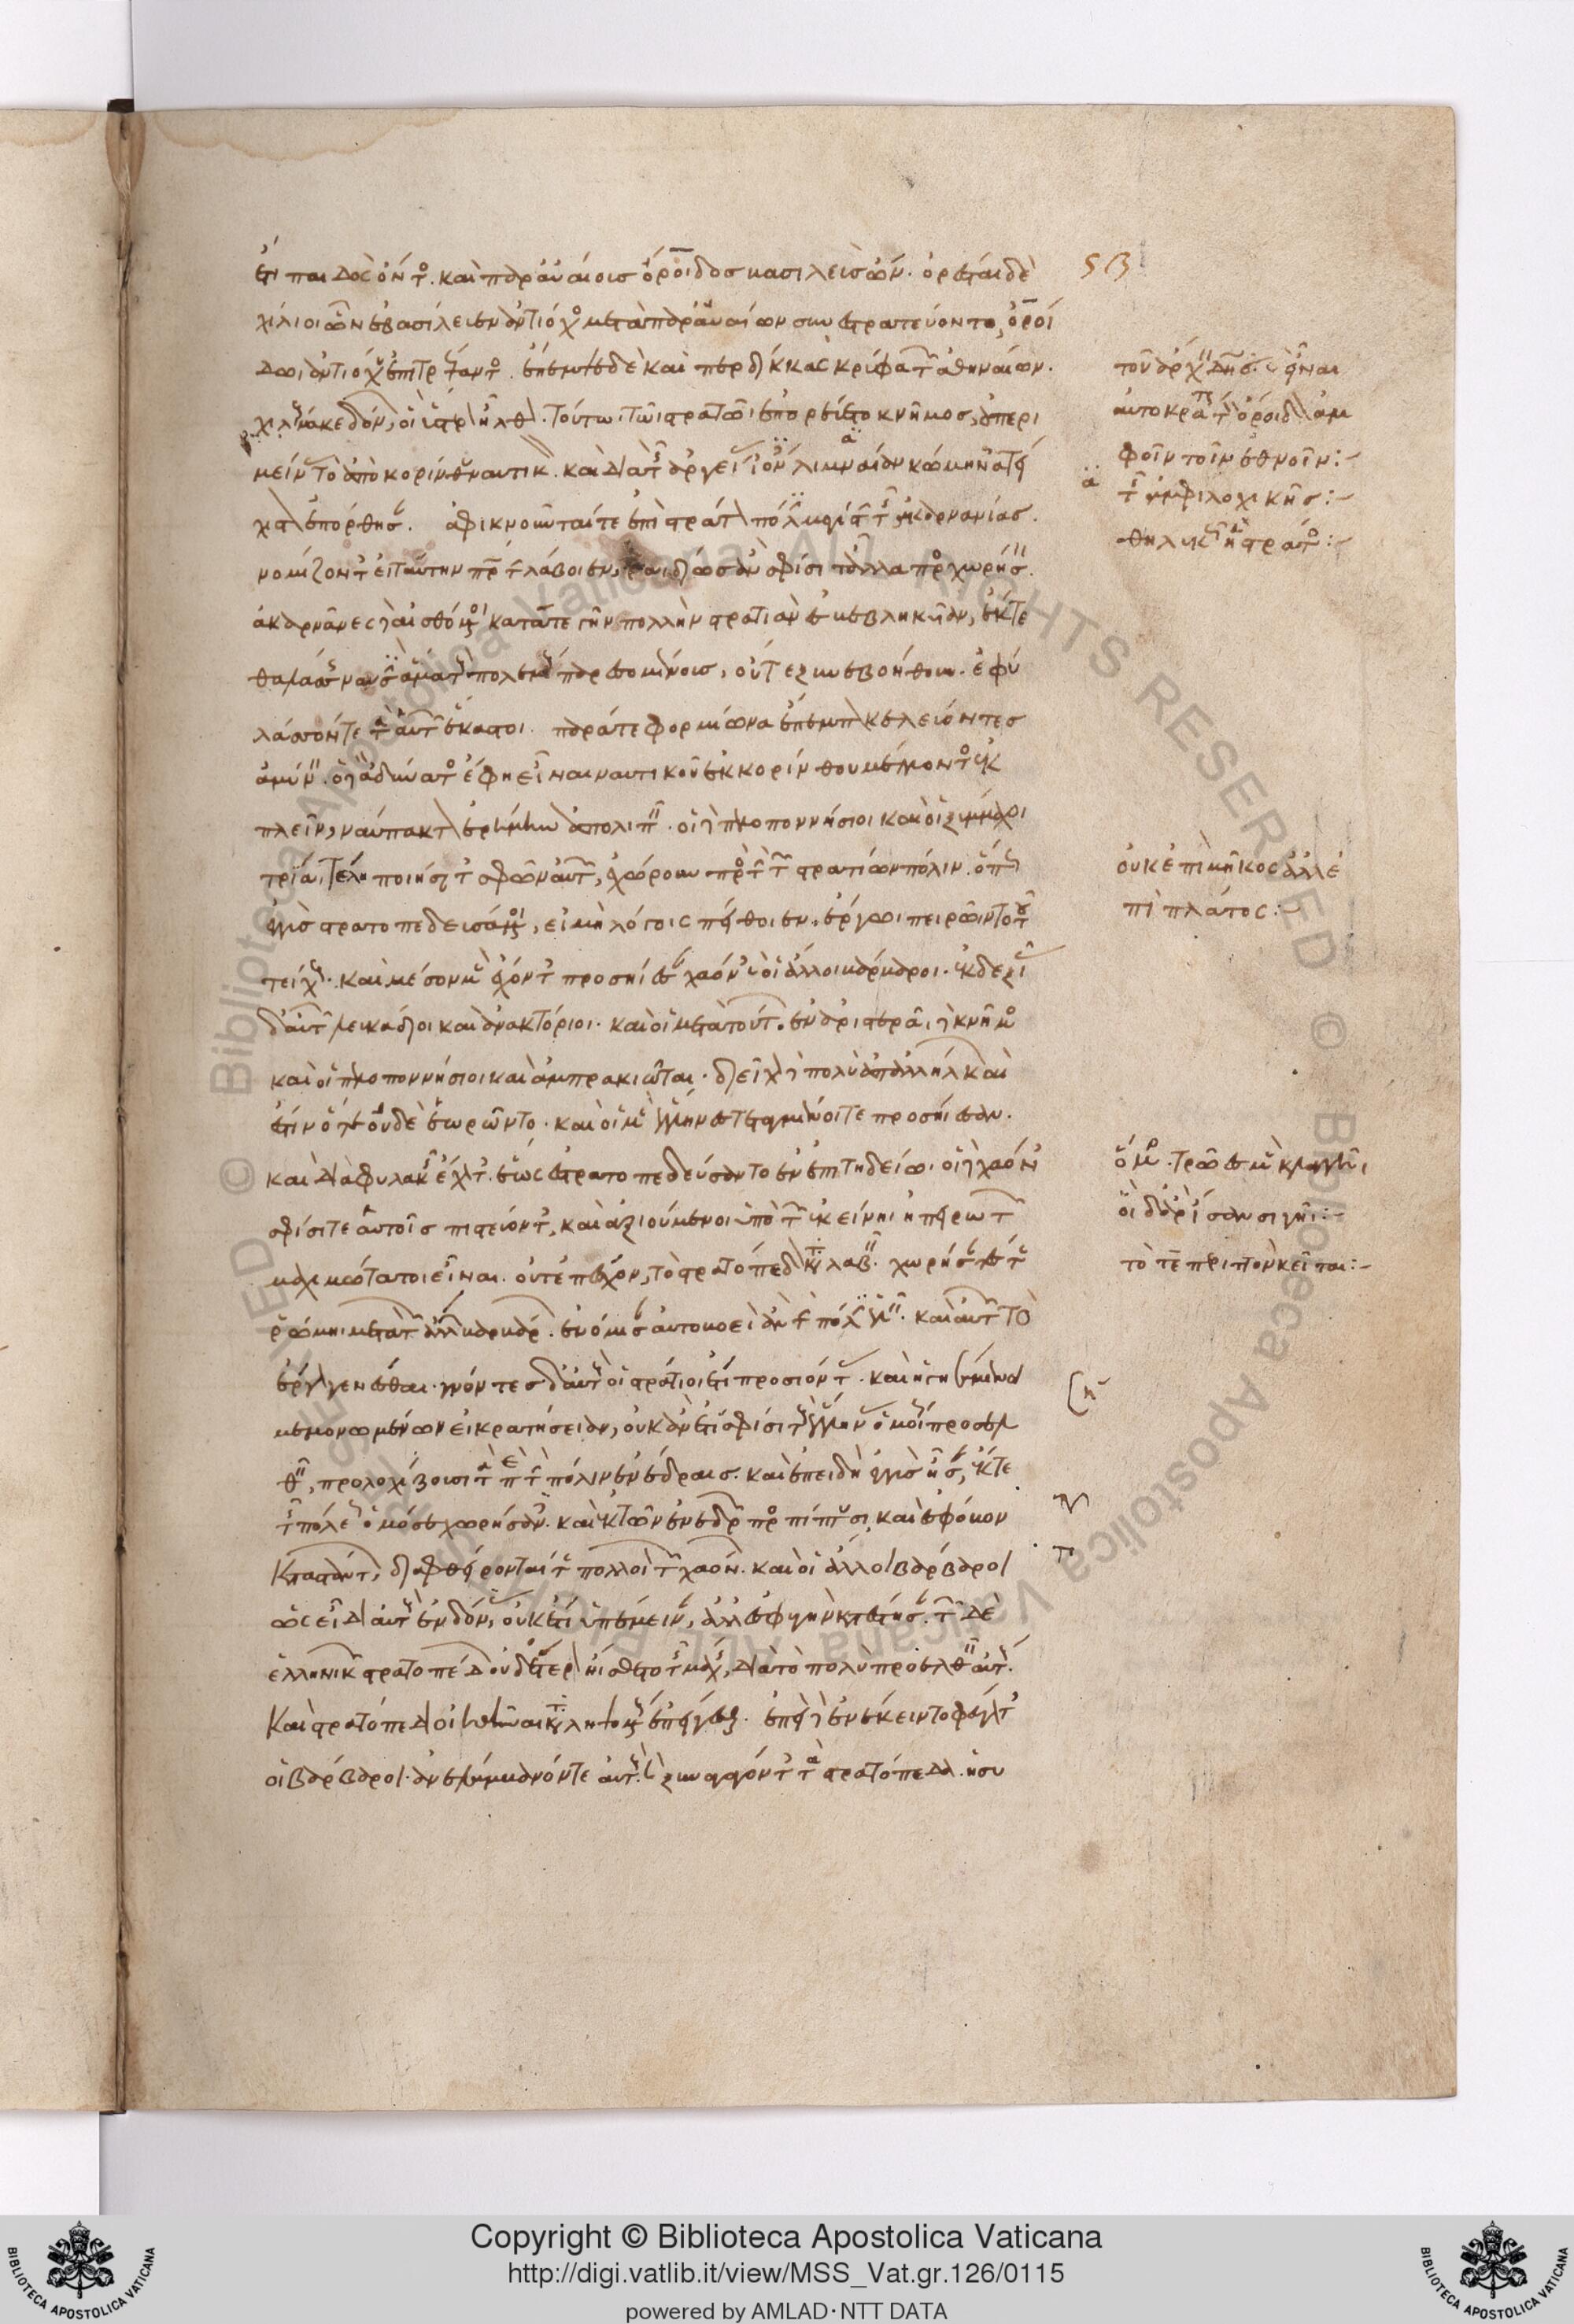 ἔτι παιδὸς ὄντος. καὶ παραυαίοις ὄροιδος βασιλεὺς ὤν. ὀρέσται δὲ
χίλιοι ὧν ἐβασίλευεν ἀντίοχος μετὰ παραυαίων συνεστρατεύοντο, ὀροί
δωι ἀντιόχου ἐπιτρέψαντος. ἔπεμψε δὲ καὶ περδίκκας κρύφα τῶν ἀθηναίων.
χιλίους μακεδόνων, οἳ ὕστερον ἦλθον. τούτωι τῶι στρατῶι ἐπορεύετο κνῆμος, οὐ περι
μείνας τὸ ἀπὸ κορίνθου ναυτικόν. καὶ διὰ τῆς ἀργείας ἰόντες λιμναίαν κώμην ἀτεί
χιστον ἐπόρθησαν. ἀφικνοῦνταί τε ἐπὶ στράτον πόλιν μεγίστην τῆς ἀκαρνανίας.
νομίζοντες εἰ ταύτην πρώτην λάβοιεν, ῥαιδίως ἂν σφίσι τἆλλα προσχωρήσειν.
ἀκαρνᾶνες δὲ αἰσθόμενοι κατά τε γῆν πολλὴν στρατιὰν ἐσβεβληκυῖαν, ἔκ τε
θαλάσσης ναυσὶν ἅμα τοὺς πολεμίους παρεσομένους, οὔτε ξυνεβοήθουν. ἐφύ
λασσόν τε τὰ αὑτῶν ἕκαστοι. παρά τε φορμίωνα ἔπεμπον κελεύοντες
ἀμύνειν. ὁ δὲ ἀδύνατος ἔφη εἶναι ναυτικοῦ ἐκ κορίνθου μέλλοντος ἐκ
πλεῖν, ναύπακτον ἐρήμην ἀπολιπεῖν. οἱ δὲ πελοποννήσιοι καὶ οἱ ξύμμαχοι
τρία τέλη ποιήσαντες σφῶν αὐτῶν, ἐχώρουν πρὸς τὴν τῶν στρατίων πόλιν. ὅπως
ἐγγὺς στρατοπεδευσάμενοι, εἰ μὴ λόγοις πείθοιεν, ἔργωι πειρῶιντο τοῦ
τείχους. καὶ μέσον μὲν ἔχοντες προσῄεσαν χάονες καὶ οἱ ἄλλοι βάρβαροι. ἐκ δεξιᾶς
δ' αὐτῶν λευκάδιοι καὶ ἀνακτόριοι. καὶ οἱ μετὰ τούτων. ἐν ἀριστερᾶι δὲ κνῆμος
καὶ οἱ πελοποννήσιοι καὶ ἀμπρακιῶται. διεῖχον δὲ πολὺ ἀπ' ἀλλήλων καὶ
ἔστιν ὅτε οὐδὲ ἑωρῶντο. καὶ οἱ μὲν ἕλληνες τεταγμένοι τε προσῄεσαν.
καὶ διὰ φυλακῆς ἔχοντες. ἕως ἐστρατοπεδεύσαντο ἐν ἐπιτηδείωι. οἱ δὲ χάονες
σφίσι τε αὐτοῖς πιστεύοντες, καὶ ἀξιούμενοι ὑπὸ τῶν ἐκείνηι ἠπειρωτῶν
μαχιμώτατοι εἶναι. οὔτε ἐπέσχον, τὸ στρατόπεδον καταλαβεῖν. χωρήσαντές τε
ῥώμηι μετὰ τῶν ἄλλων βαρβάρων. ἐνόμισαν αὐτοβοεὶ ἂν τὴν πόλιν ἑλεῖν. καὶ αὐτῶν τὸ
ἔργον γενέσθαι. γνόντες δ' αὐτοὺς οἱ στράτιοι ἔτι προσιόντας. καὶ ἡγησάμενοι
μεμονωμένων εἰ κρατήσειαν, οὐκ ἂν ἔτι σφίσι τοὺς ἕλληνας ὁμοίως προσελ
θεῖν, προλοχίζουσι τὰ περὶ τὴν πόλιν ἐνέδραις. καὶ ἐπειδὴ ἐγγὺς ἦσαν, ἔκ τε
τῆς πόλεως ὁμόσε χωρήσαντες. καὶ ἐκ τῶν ἐνεδρῶν προσπίπτουσι. καὶ ἐς φόβον
καταστάντων, διαφθείρονταί τε πολλοὶ τῶν χαόνων. καὶ οἱ ἄλλοι βάρβαροι
ὡς εἶδον αὐτοὺς ἐνδόντας, οὐκέτι ὑπέμειναν, ἀλλ' ἐς φυγὴν κατέστησαν. τῶν δὲ
ἑλληνικῶν στρατοπέδων οὐδέτερον ἤισθετο τῆς μάχης, διὰ τὸ πολὺ προελθεῖν αὐτούς.
καὶ στρατόπεδον οἰηθῆναι καταληψομένους ἐπείγεσθαι. ἐπεὶ δ' ἐνέκειντο φεύγοντες
οἱ βάρβαροι. ἀνελάμβανόν τε αὐτοὺς καὶ ξυναγαγόντες τὰ στρατόπεδα. ἡσύ
τῆς ἀμφιλοχικῆς:
οὐκ ἐπὶ μῆκος ἀλλ' ἐ
πὶ πλάτος: